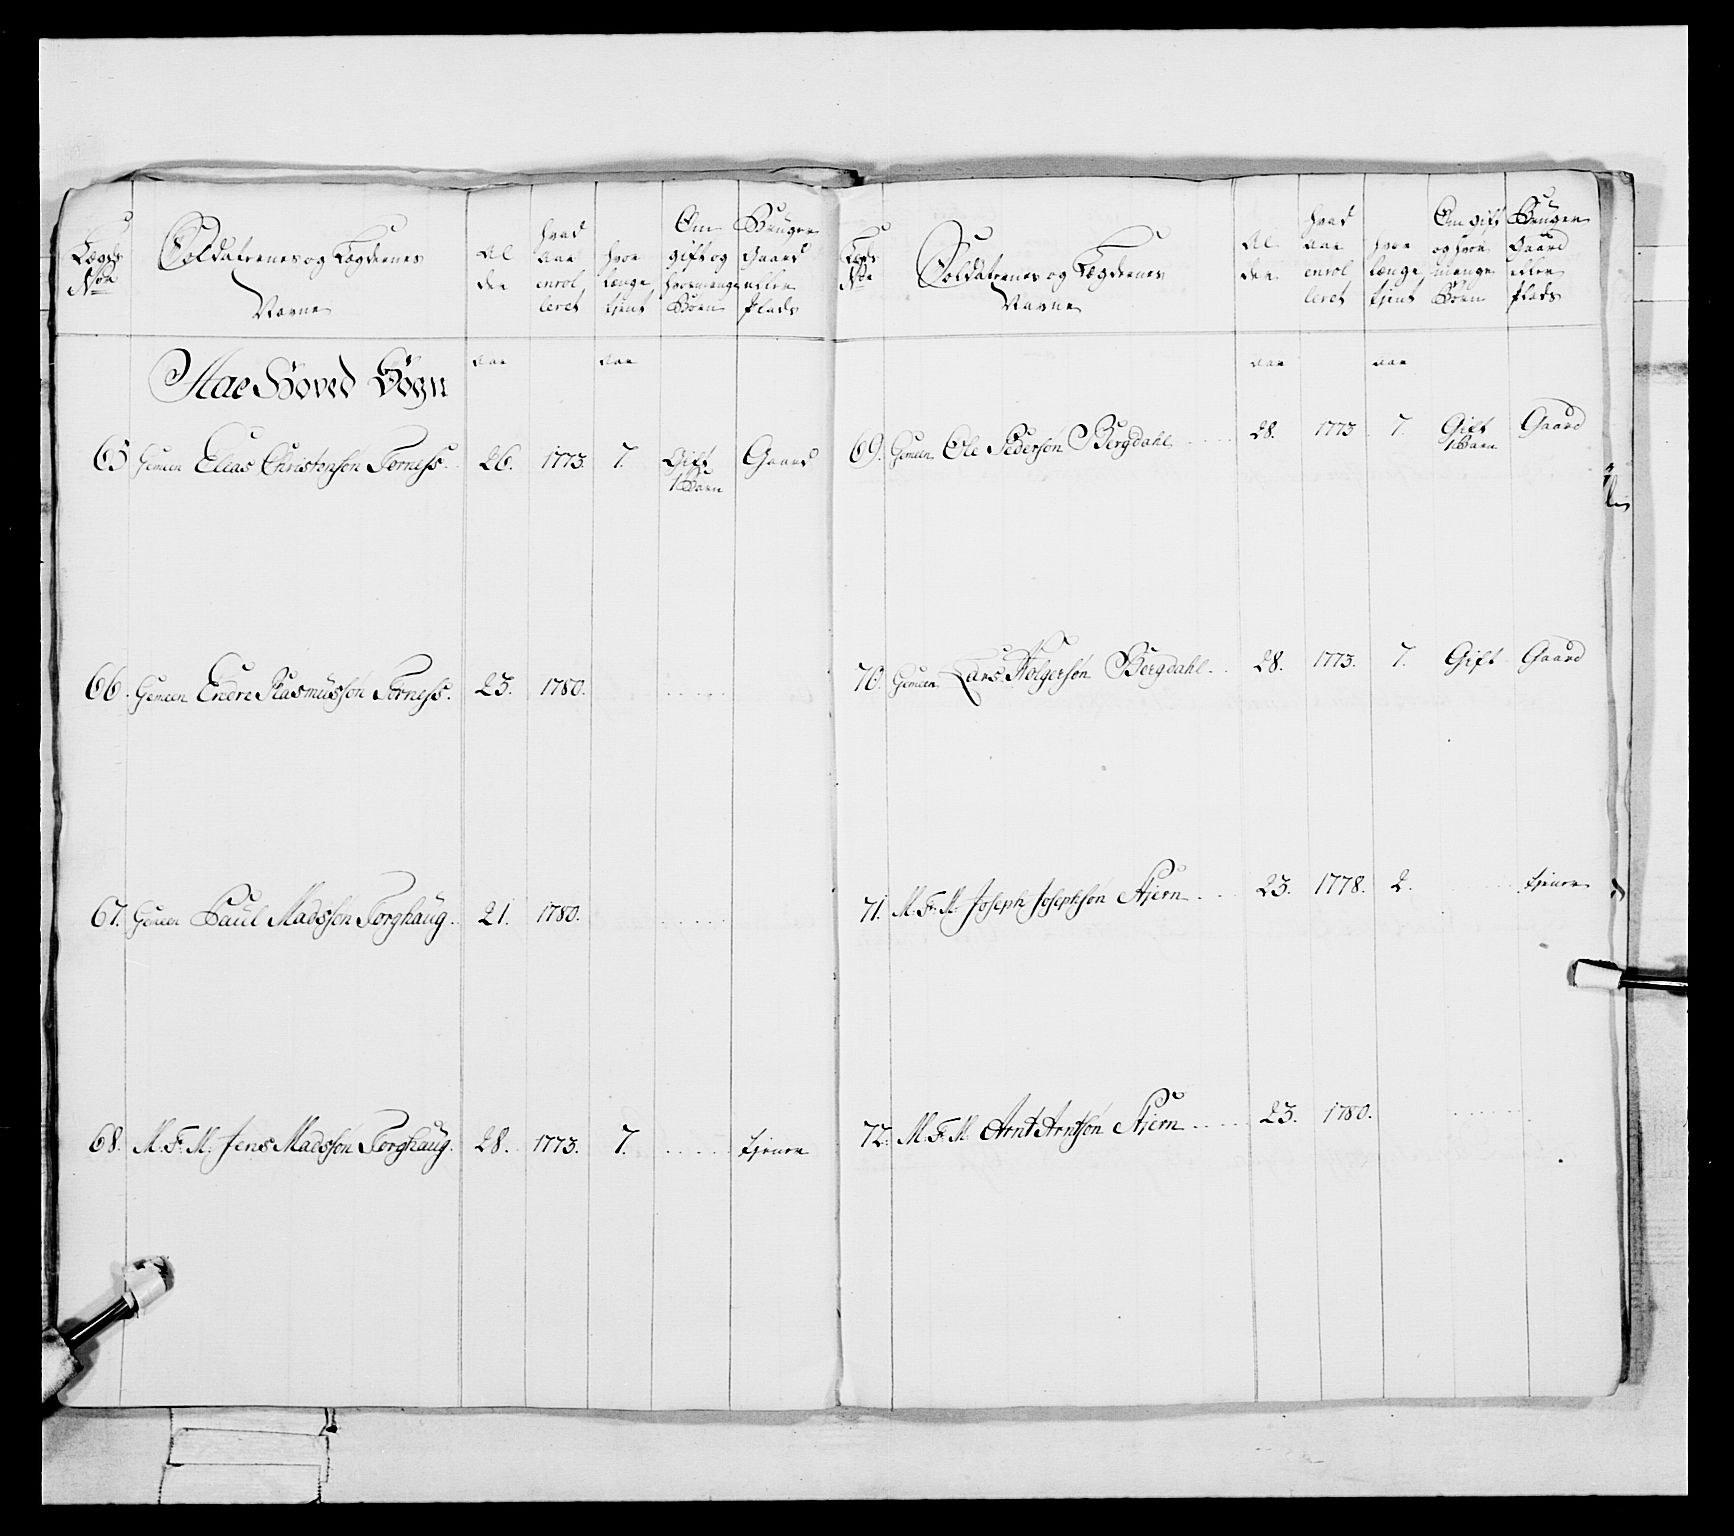 Lægds No
Soldaternes og Lægdernes Navne
Al den
hvad Aar enrol leret
hvor længe tjent
Om gift og hvormange Børn
Bruger Gaard eller Plads
Aar
Aar
65 Gemeen Elias Christenson Torness. 26. 1773. 7. Gift 1 Barn Gaard
66. Gemeen Endre Rasmusson Torness. 23. 1780.
67. Gemeen Paul Madsson Torghaug. 21. 1780.
68. M. F. M. Jens Madsson Torghaug. 28. 1773. 7. tjener
Lægds No
Soldaternes og Lægdernes Navne
Al den
hvad Aar enrol leret
hvor længe tjent
Om gift og hvor mange Børn
Bruger Gaard eller Plads
Aar
Aar
69. Gemeen Ole Pederson Bergdahl 28. 1773 7. Gift 1 Barn Gaard
70. Gemeen Lars Holgerson Bergdahl 28. 1773. 7. Gift Gaard
71. M. F. M. Joseph Josephson Stjern 23. 1778. 2. tjener
72. M. F. M. Arnt Arntson Stjern 23. 1780.